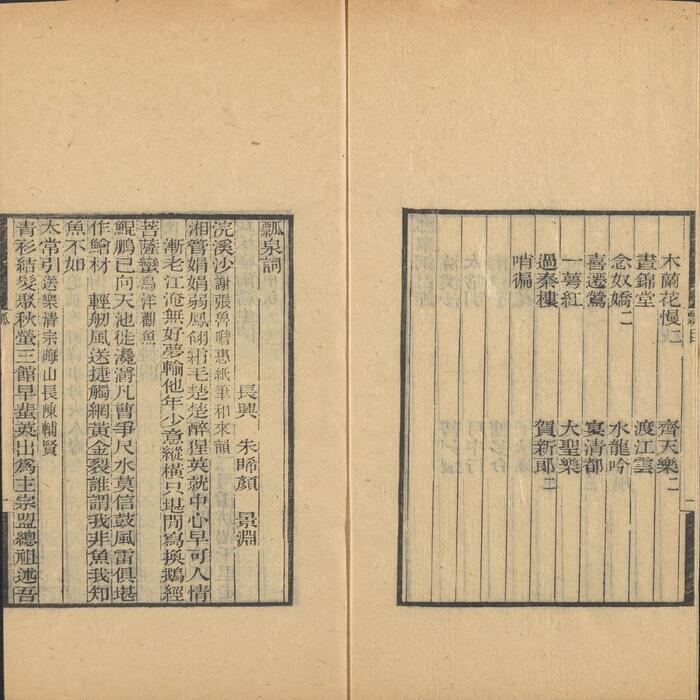 木蘭花慢二　齊天樂二
晝錦堂　渡江雲
念奴嬌二　水龍吟
喜遷鶯　宴清都
一萼紅　大聖樂
過秦樓　賀新郎二
哨徧
瓢泉詞
長興　朱晞顏　景淵
浣溪沙謝張魯瞻惠紙筆和來韻
湘管娟娟弱鳳翎霜毛楚楚醉猩英就中心早可人情
漸老江淹無好夢輸他年少意縱橫只堪閒寫換鵝經
菩薩蠻烏洋觀魚
鯤鵬已向天池徙瀺灂凡曹爭尺水莫信鼓風雷俱堪
作鱠材　輕舠風送捷觸網黃金裂誰謂我非魚我知
魚不如
太常引送樂清宗晦山長陳輔賢
青衫結髮聚秋螢三館早蜚英出為主宗盟總祖述吾